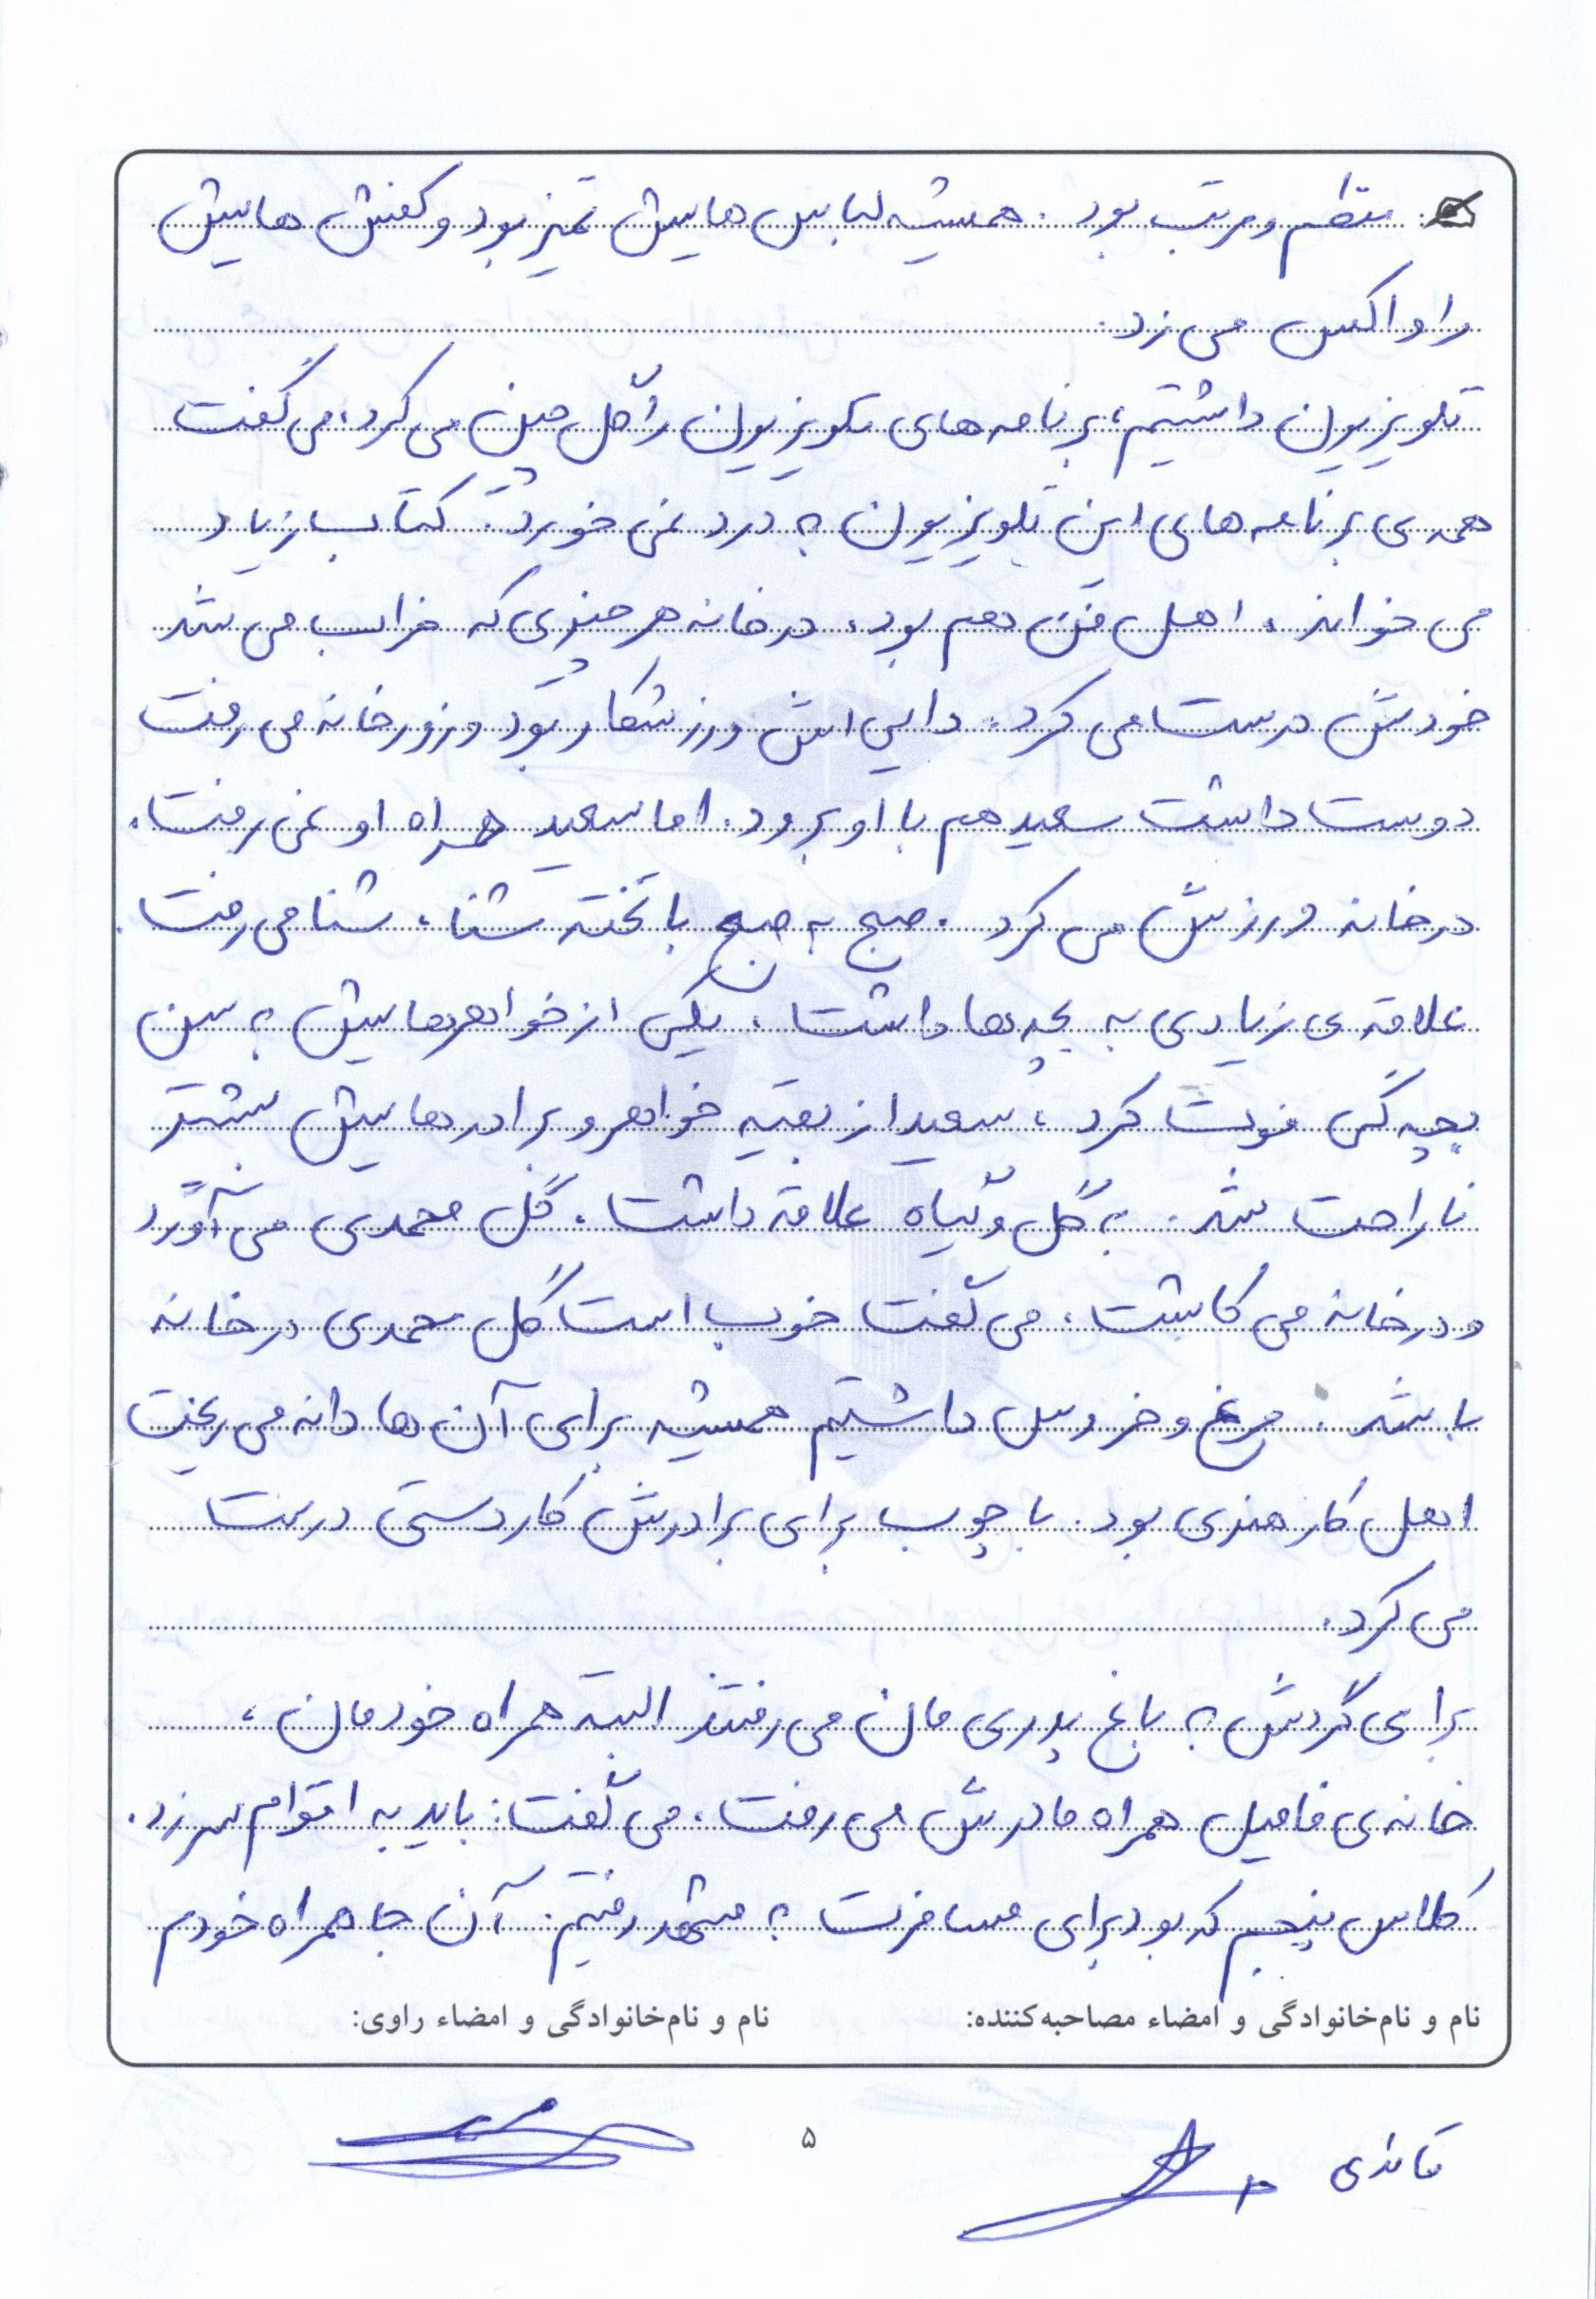 منظم و مرتب بود. همیشه لباس هایش تمیز بود و کفش هایش
را واکس می زد.
تلویزیون داشتیم، برنامه های تلویزیون را گل چین می کرد، می گفت
همه ی برنامه های این تلویزیون به درد نمی خورد. کتاب زیاد
می خواند. اهل فن هم بود، در خانه هر چیزی که خراب می شد
خودش درست می کرد. دایی اش ورزشکار بود و زورخانه می رفت
دوست داشت سعید هم با او برود. اما سعید همراه او نمی رفت.
در خانه ورزش می کرد. صبح به صبح با تخته شنا، شنا می رفت.
علاقه ی زیادی به بچه ها داشت، یکی از خواهرهایش به سن
بچه گی فوت کرد، سعید از بقیه خواهر و برادرهایش بیشتر
ناراحت شد. به گل و گیاه علاقه داشت. گل محمدی می آورد
و در خانه می کاشت، می گفت خوب است گل محمدی در خانه
باشد. مرغ و خروس داشتیم همیشه برای آن ها دانه می ریخت
اهل کار هنری بود. با چوب برای برادرش کاردستی درست
می کرد.
برای گردش به باغ پدری مان می رفتند البته همراه خودمان،
خانه ی فامیل همراه مادرش می رفت، می گفت: باید به اقوام سر زد.
کلاس پنجم که بود برای مسافرت به مشهد رفتیم. آن جا همراه خودم
نام و نام‌خانوادگی و امضاء مصاحبه‌کننده: نام و نام‌خانوادگی و امضاء راوی:
۵